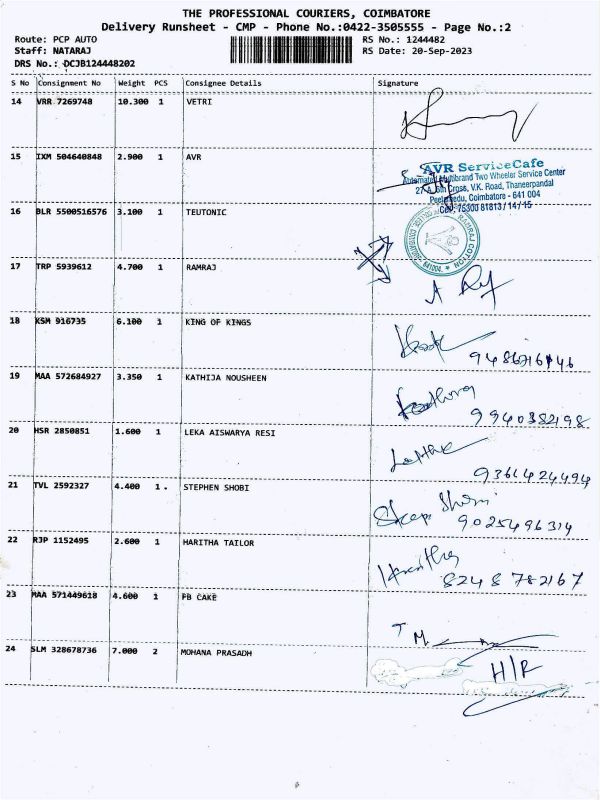 THE PROFESSIONAL COURIERS, COIMBATORE
Delivery Runsheet - CMP - Phone No.:0422-3505555 - Page No.:2
Route: PCP AUTO RS No.: 1244482
Staff: NATARAJ RS Date: 20-Sep-2023
DRS No.: DCJB124448202
S No Consignment No Weight PCS Consignee Details Signature
14 VRR 7269748 10.300 1 VETRI
15 IXM 504640848 2.900 1 AVR
AVR ServiceCafe
Automated Multibrand Two Wheeler Service Center
Cross, V.K. Road, Thaneerpandal
Peelamedu, Coimbatore - 641 004
Cell: 75300 81813 / 14 / 15
16 BLR 5500516576 3.100 1 TEUTONIC
RAMRAJ COTTON
641004
17 TRP 5939612 4.700 1 RAMRAJ
18 KSM 916735 6.100 1 KING OF KINGS
19 MAA 572684927 3.350 1 KATHIJA NOUSHEEN
9940382198
20 HSR 2850851 1.600 1 LEKA AISWARYA RESI
9361424494
21 TVL 2592327 4.400 1 . STEPHEN SHOBI
9025496314
22 RJP 1152495 2.600 1 HARITHA TAILOR
Haritha
8248 782167
23 MAA 571449618 4.600 1 FB CAKE
24 SLM 328678736 7.000 2 MOHANA PRASADH
H/R